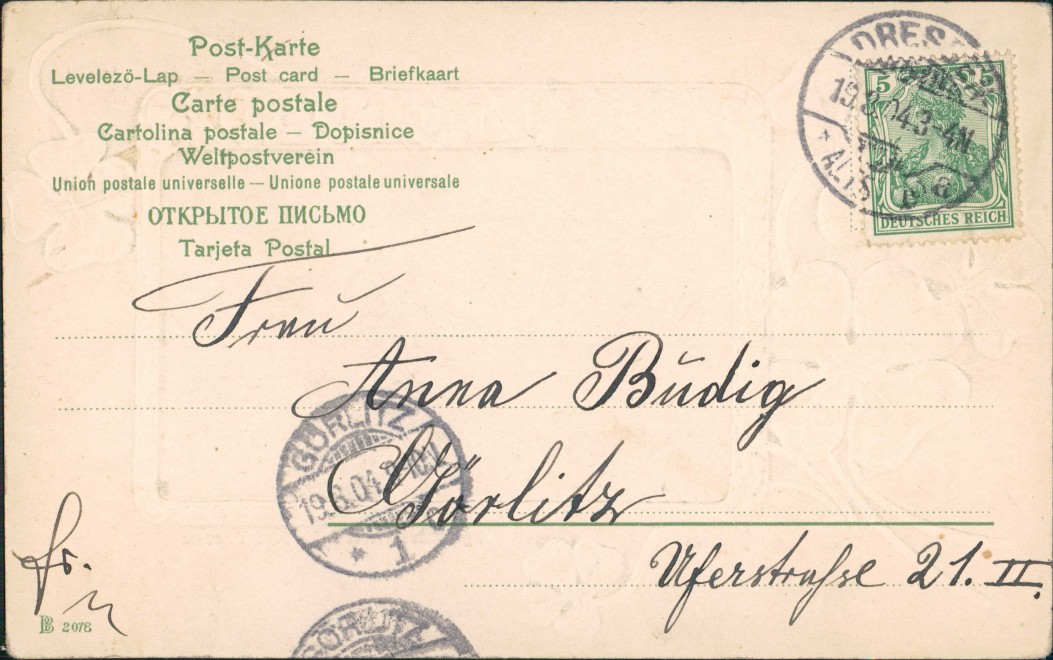 Post-Karte
Levelezö-Lap — Post card — Briefkaart
Carte postale
Cartolina postale — Dopisnice
Weltpostverein
Union postale universelle — Unione postale universale
ОТКРЫТОЕ ПИСЬМО
Tarjeta Postal
DRES
19.3.04.3-4N
ALTST.
5 5
DEUTSCHES REICH
Frau
Anna Büdig
Görlitz
Uferstrahse 21. II.
GÖRLITZ
19.3.04
* 1
fr.
BB 2078
GÖRLITZ